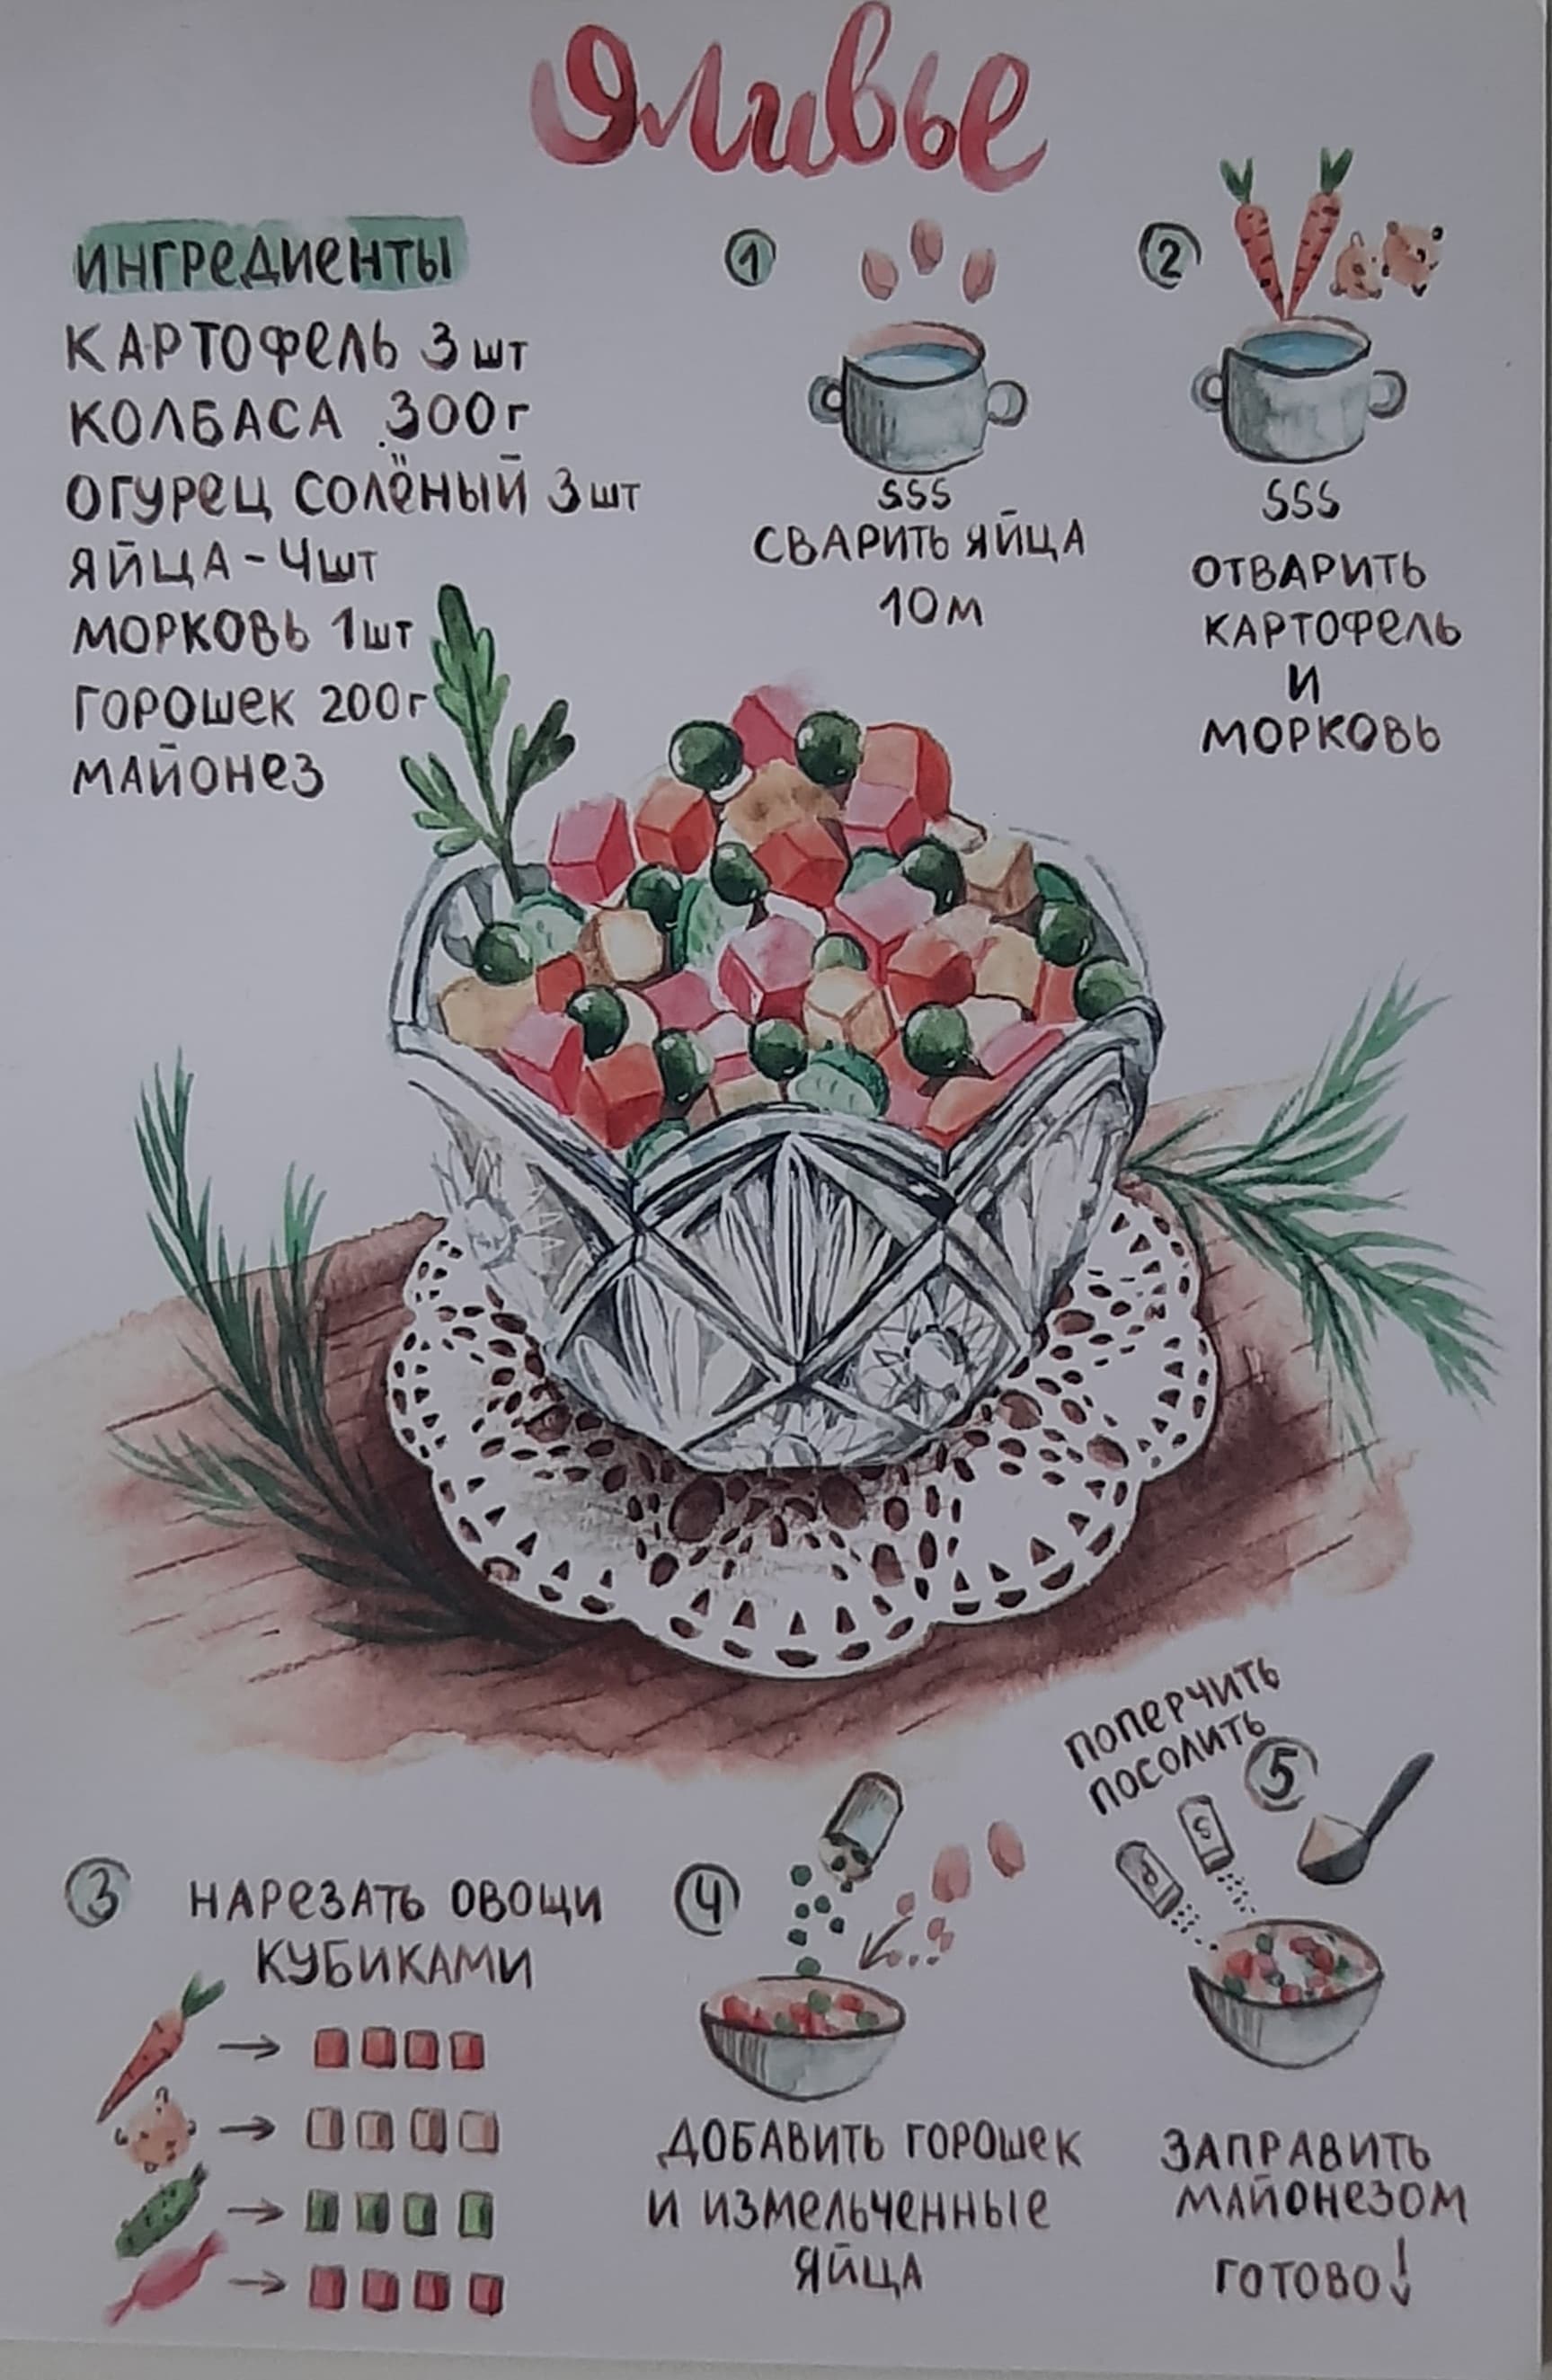 Оливье
ИНГРЕДИЕНТЫ
КАРТОФЕЛЬ 3 шт
КОЛБАСА 300г
ОГУРЕЦ СОЛЁНЫЙ 3 шт
ЯЙЦА-4шт
МОРКОВЬ 1шт
ГОРОШЕК 200г
МАЙОНЕЗ
1
SSS
СВАРИТЬ ЯЙЦА
10м
2
SSS
ОТВАРИТЬ
КАРТОФЕЛЬ
И
МОРКОВЬ
3 НАРЕЗАТЬ ОВОЩИ
КУБИКАМИ
4
ДОБАВИТЬ ГОРОШЕК
И ИЗМЕЛЬЧЕННЫЕ
ЯЙЦА
ПОПЕРЧИТЬ
ПОСОЛИТЬ
5
P
S
ЗАПРАВИТЬ
МАЙОНЕЗОМ
ГОТОВО!